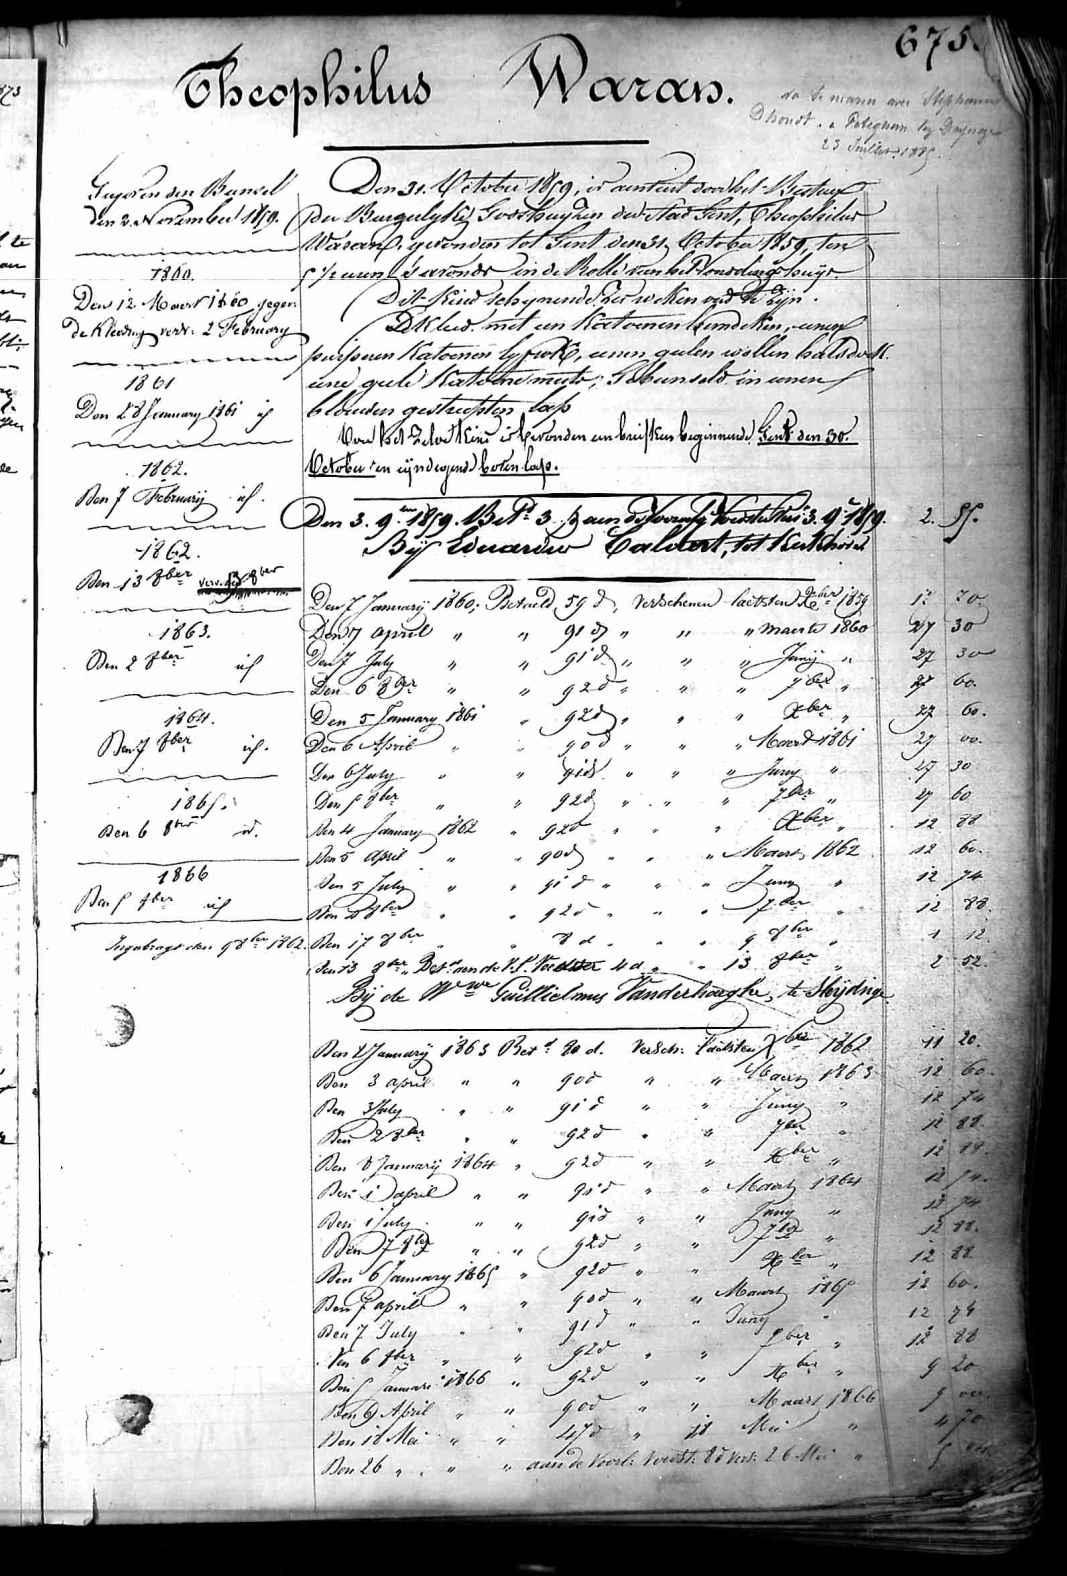 675
Theophilus Waran.
23 Juillet 1885.
Gegeven den Bundsel
den 2 November 1859.
1860.
Den 12 Maert 1860 gegeven
de Kleeding verv: 2 February
1861
Den 28 January 1861 id
1862.
Den 7 February id.
1862.
Den 13 8ber
1863.
Den 2 8ber id
1864.
Den 7 8ber id.
1865.
Den 6 8ber id.
1866
Den 5 8ber id
Ingebragt den 9 8ber 1862.
Den 31 October 1859, is aenveerd door het Bestuer
der Burgerlyke Godshuyzen der stad Gent, Theophilus
Waran, gevonden tot Gent den 31 October 1859, ten
5 ½ uren 's avonds in de Rolle van het Vondelinghuys
Dit Kind schynende twee weken oud te zyn.
Gekleed met een Katoenen hemdeken, eenen
purperen Katoenen lyfrok, eenen geelen wollen halsdoek
eene geele Katoene muts, Gebunseld in eenen
blauwen gestreepten lap
Van het zelve Kind is bevonden een briefken beginnende Gent den 30
October en eyndigende boven lap.
Den 3. 9ber 1859. Bet. 3 aen de Voorig Voedster 3 9ber 1859. 2. 55.
Bij Eduardus Calvaert, tot Kerkhove
Den 7 January 1860, Betaeld 59 d, verschenen laetsten Xber 1859 17 70
Den 7 April " " 91 d " " " maert 1860 27 30
Den 7 July " " 91 d " " " Juny " 27 30
Den 6 8ber " " 92 d " " " 7ber " 27 60
Den 5 January 1861 " 92 d " " " Xber " 27 60.
Den 6 April " " 90 d " " " Maert 1861 27 00.
Den 6 July " " 91 d " " " Juny " 27 30
Den 5 8ber " " 92 d " " " 7ber " 27 60
Den 4 January 1862 " 92 d " " " Xber " 12 88
Den 5 April " " 90 d " " " Maert 1862 12 60.
Den 5 July " " 91 d " " " Juny " 12 74
Den 8 8ber " " 92 d " " " 7ber " 12 88.
Den 17 8ber " " 8 d " " " 9 8ber " 1 12.
Den 13 8ber Bet. aen de V.P. Voedster 4 d " " 13 8ber " 2 52
Bij de Wwe Guillielmus Vanderhaeghe, te Sleydinge
Den 2 January 1863 Bet. 80 d. versch: laetsten Xber 1862 11 20.
Den 3 april " " 90 d " " Maert 1863 12 60.
Den 3 July " " 91 d " " Juny " 12 74
Den 2 8ber " " 92 d " " 7ber " 12 88.
Den 8 January 1864 " 92 d " " Xber " 12 88.
Den 1 april " " 91 d " " Maert 1864 12 74.
Den 1 July " " 91 d " " Juny " 12 74
Den 7 8ber " " 92 d " " 7ber " 12 88.
Den 6 January 1865 " 92 d " " Xber " 12 88
Den 7 april " " 90 d " " Maert 1865 12 60.
Den 7 July " " 91 d " " Juny " 12 74
Den 6 8ber " " 92 d " " 7ber " 12 88
Den 5 Januari 1866 " 92 d " " Xber " 9 20
Den 6 April " " 90 d " " Maart 1866 9 00.
Den 18 Mei " " 47 d " 18 Mei " 4 70
Den 26 " " " aan de Voorl: Voedst: 8 d vers: 26 Mei "